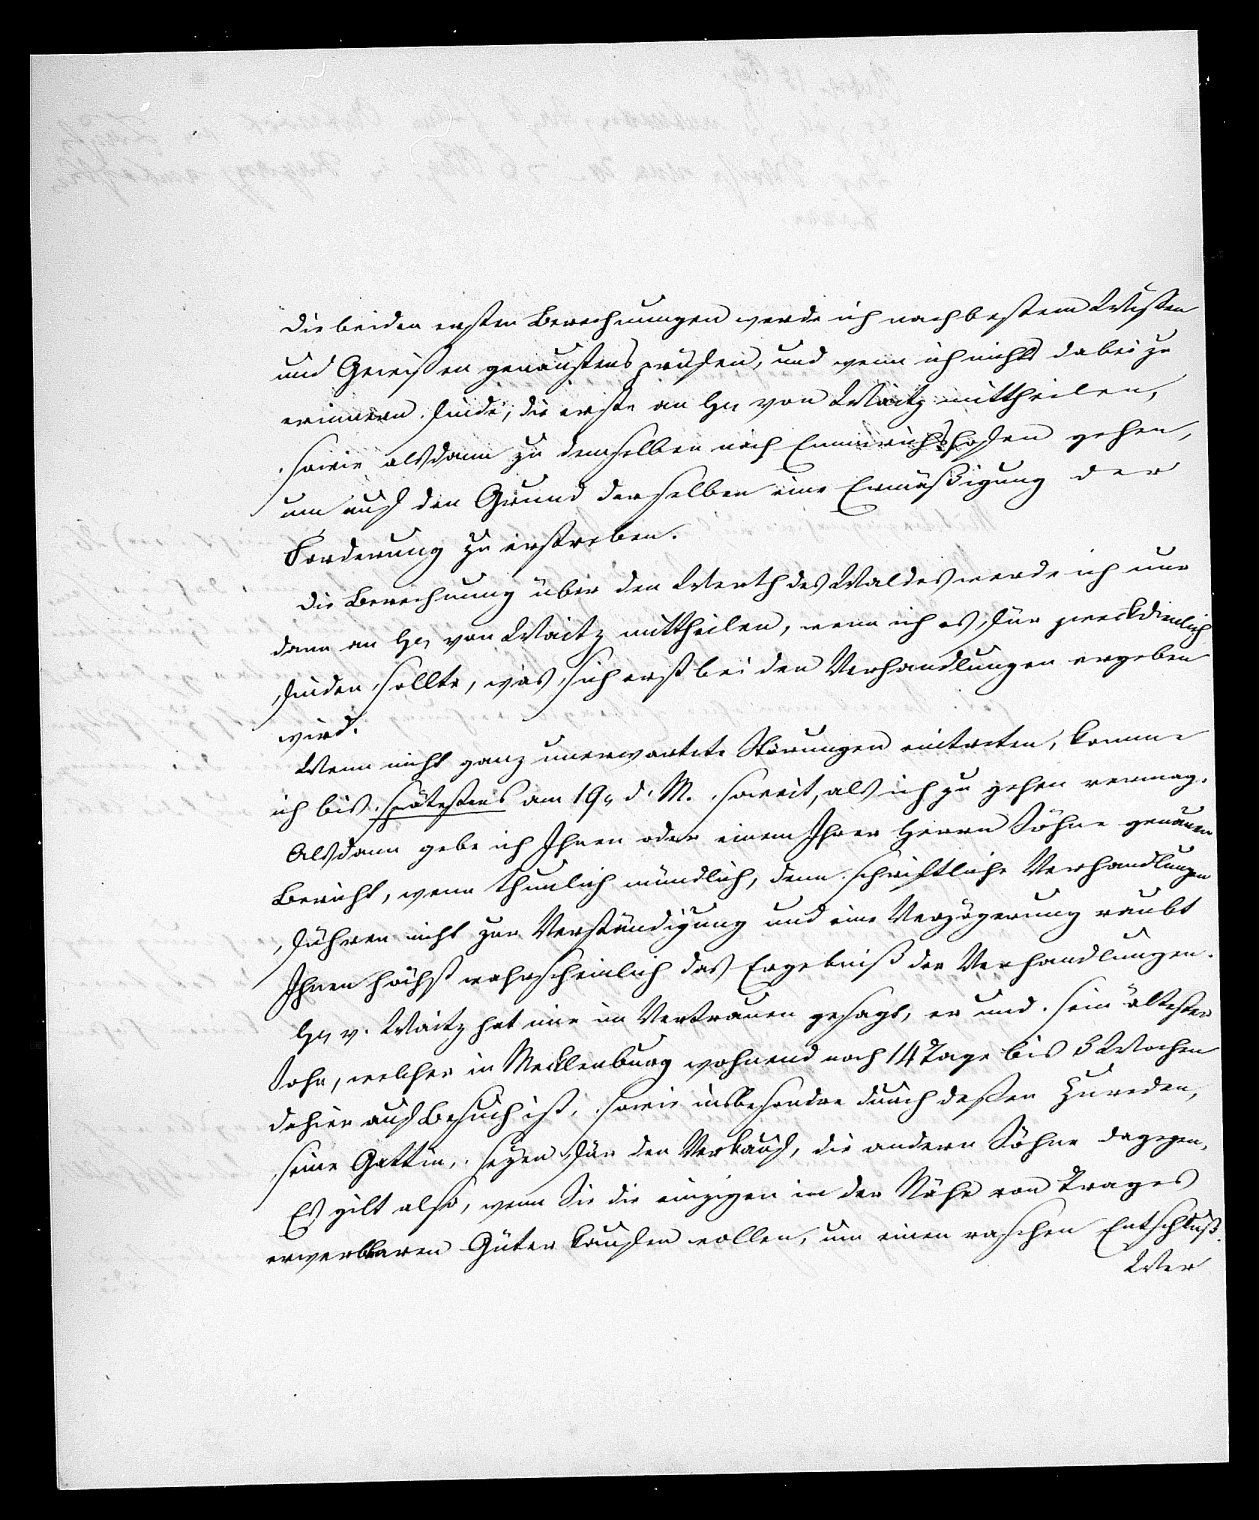 Die beiden ersten Berechnungen werde ich nach bestem Wissen
und Gewissen genaustens prüfen, und wenn ich nichts dabei zu
erinnern finde, die erste an Hn von Waitz mittheilen,
sowie alsdann zu demselben nach Emmerichshofen gehen,
um auf den Grund derselben eine Ermäßigung der
Forderung zu erstreben.
Die Berechnung über den Werth des Waldes werde ich nur
dann an Hn von Waitz mittheilen, wenn ich es für zweckdienlich
finden sollte, was sich erst bei den Verhandlungen ergeben
wird.
Wenn nicht ganz unerwartete Störungen eintreten, komme
ich bis spätestens am 19. d. M. soweit, als ich zu gehen vermag.
Alsdann gebe ich Ihnen oder einem Ihrer Herrn Söhne genauen
Bericht, wenn thunlich mündlich, denn schriftliche Verhandlungen
führen nicht zur Verständigung und eine Verzögerung raubt
Ihnen höchst wahrscheinlich das Ergebniß der Verhandlungen.
Hn v. Waitz hat mir im Vertrauen gesagt, er und sein ältester
Sohn, welcher in Mecklenburg wohnend noch 14 Tage bis 3 Wochen
dahier auf Besuch ist, sowie insbesondre durch deßen Zureden,
seine Gattin, seyen für den Verkauf, die andern Söhne dagegen.
Es gilt also, wenn Sie die einzigen in der Nähe von Trages
erwerbbaren Güter kaufen wollen, um einen raschen Entschluß.
Wer